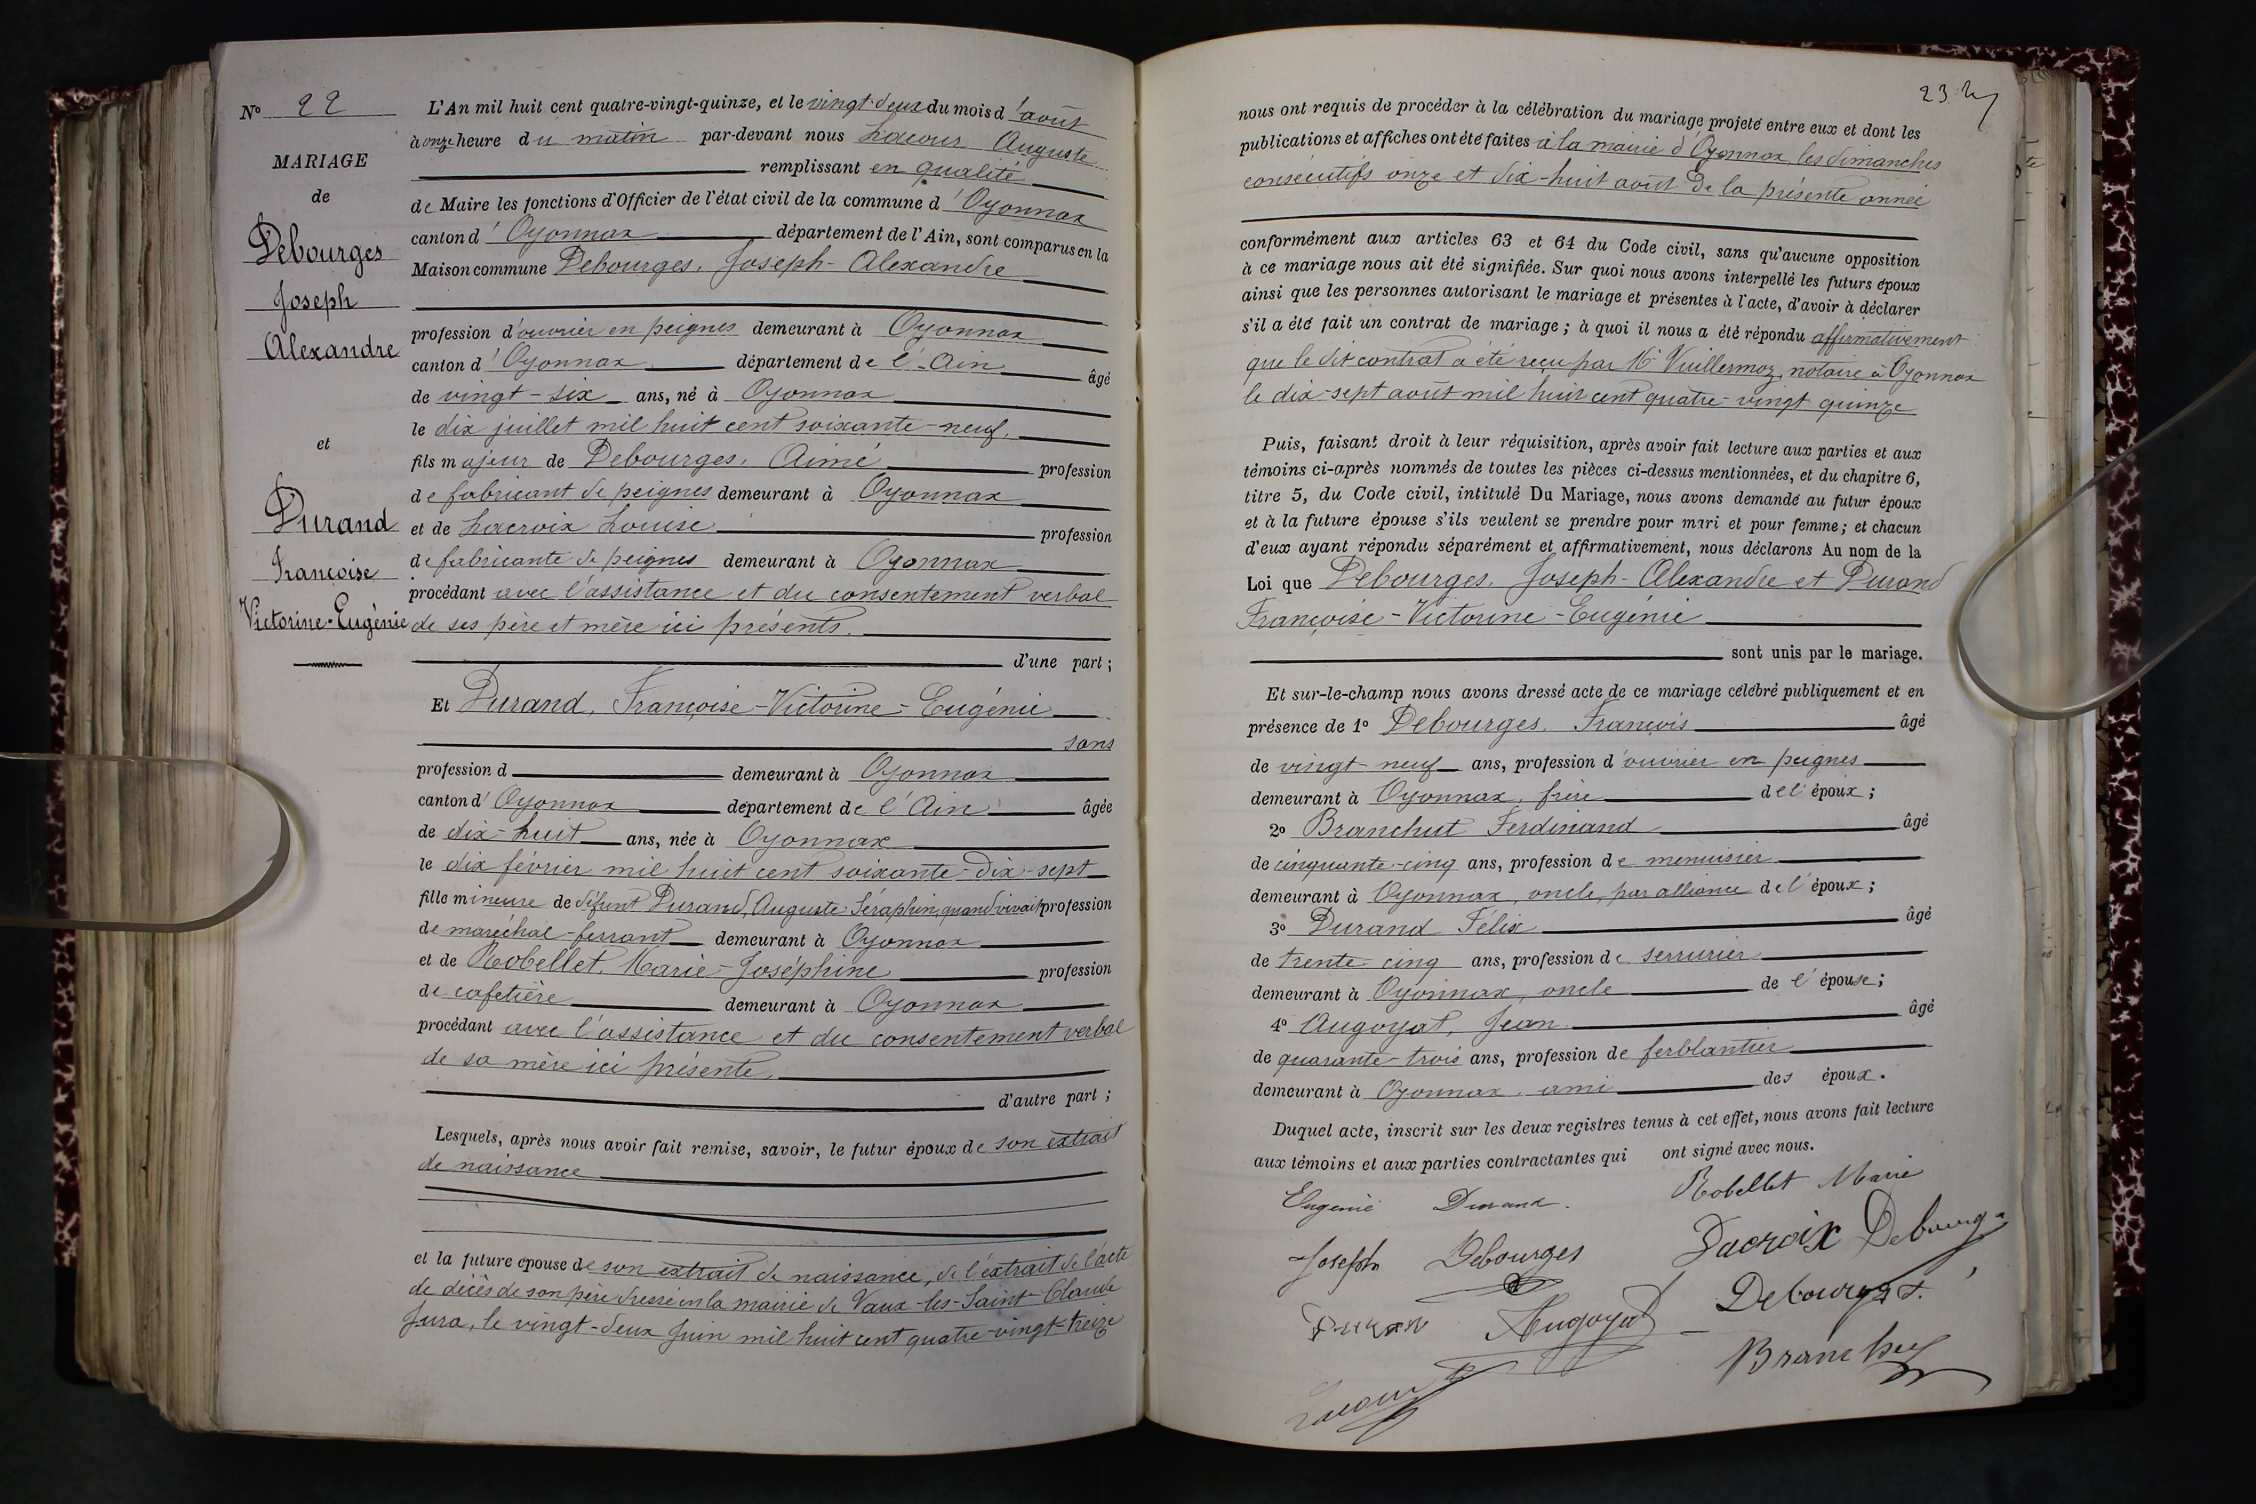 N° 22
MARIAGE
de
Debourges
Joseph
Alexandre
et
Durand
Françoise
Victorine-Eugénie
L'An mil huit cent quatre-vingt-quinze, et le vingt-deux du mois d'août
à onze heure du matin par-devant nous Lacour Auguste
remplissant en qualité
de Maire les fonctions d'Officier de l'état civil de la commune d'Oyonnax
canton d'Oyonnax département de l'Ain, sont comparus en la
Maison commune Debourges, Joseph-Alexandre
profession d'ouvrier en peignes demeurant à Oyonnax
canton d'Oyonnax département de l'Ain âgé
de vingt-six ans, né à Oyonnax
le dix juillet mil huit cent soixante-neuf,
fils majeur de Debourges, Aimé profession
de fabricant de peignes demeurant à Oyonnax
et de Lacroix Louise profession
de fabricante de peignes demeurant à Oyonnax
procédant avec l'assistance et du consentement verbal
de ses père et mère ici présents.
d'une part ;
Et Durand, Françoise-Victorine-Eugénie
sans
profession d demeurant à Oyonnax
canton d'Oyonnax département de l'Ain âgée
de dix-huit ans, née à Oyonnax
le dix février mil huit cent soixante-dix-sept
fille mineure de défunt Durand, Auguste Séraphin, quand vivait profession
de maréchal-ferrant demeurant à Oyonnax
et de Robellet, Marie-Joséphine profession
de cafetière demeurant à Oyonnax
procédant avec l'assistance et du consentement verbal
de sa mère ici présente.
d'autre part ;
Lesquels, après nous avoir fait remise, savoir, le futur époux de son extrait
de naissance
et la future épouse de son extrait de naissance, de l'extrait de l'acte
de décès de son père dressé en la mairie de Vaux-les-Saint-Claude
Jura, le vingt-deux Juin mil huit cent quatre-vingt-treize
nous ont requis de procéder à la célébration du mariage projeté entre eux et dont les
publications et affiches ont été faites à la mairie d'Oyonnax, les dimanches
consécutifs onze et dix-huit août de la présente année
conformément aux articles 63 et 64 du Code civil, sans qu'aucune opposition
à ce mariage nous ait été signifiée. Sur quoi nous avons interpellé les futurs époux
ainsi que les personnes autorisant le mariage et présentes à l'acte, d'avoir à déclarer
s'il a été fait un contrat de mariage ; à quoi il nous a été répondu affirmativement
que le dit contrat a été reçu par Me Vuillermoz, notaire à Oyonnax
le dix-sept août mil huit cent quatre-vingt quinze
Puis, faisant droit à leur réquisition, après avoir fait lecture aux parties et aux
témoins ci-après nommés de toutes les pièces ci-dessus mentionnées, et du chapitre 6,
titre 5, du Code civil, intitulé Du Mariage, nous avons demandé au futur époux
et à la future épouse s'ils veulent se prendre pour mari et pour femme ; et chacun
d'eux ayant répondu séparément et affirmativement, nous déclarons Au nom de la
Loi que Debourges, Joseph-Alexandre et Durand
Françoise-Victorine-Eugénie
sont unis par le mariage.
Et sur-le-champ nous avons dressé acte de ce mariage célébré publiquement et en
présence de 1° Debourges, François âgé
de vingt-neuf ans, profession d'ouvrier en peignes
demeurant à Oyonnax, frère de l'époux ;
2° Branchut Ferdinand âgé
de cinquante-cinq ans, profession de menuisier
demeurant à Oyonnax, oncle par alliance de l'époux ;
3° Durand Félix âgé
de trente-cinq ans, profession de serrurier
demeurant à Oyonnax, oncle de l'épouse ;
4° Augoyat, Jean âgé
de quarante-trois ans, profession de ferblantier
demeurant à Oyonnax, ami des époux.
Duquel acte, inscrit sur les deux registres tenus à cet effet, nous avons fait lecture
aux témoins et aux parties contractantes qui ont signé avec nous.
Eugénie Durand. Robellet Marie
Joseph Debourges Lacroix Debourg
Durand Augoyat Debourges f.
Branchut
Lacour